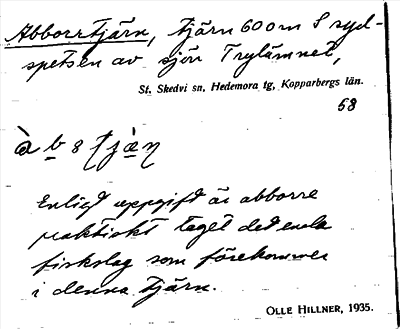 Abborrtjärn, tjärn 600 m S syd-
spetsen av sjön Trylämnet,
St. Skedvi sn, Hedemora tg, Kopparbergs län.
58
Enligt uppgift är abborre
praktiskt taget det enda
fiskslag som förekommer
i denna tjärn.
OLLE HILLNER, 1935.